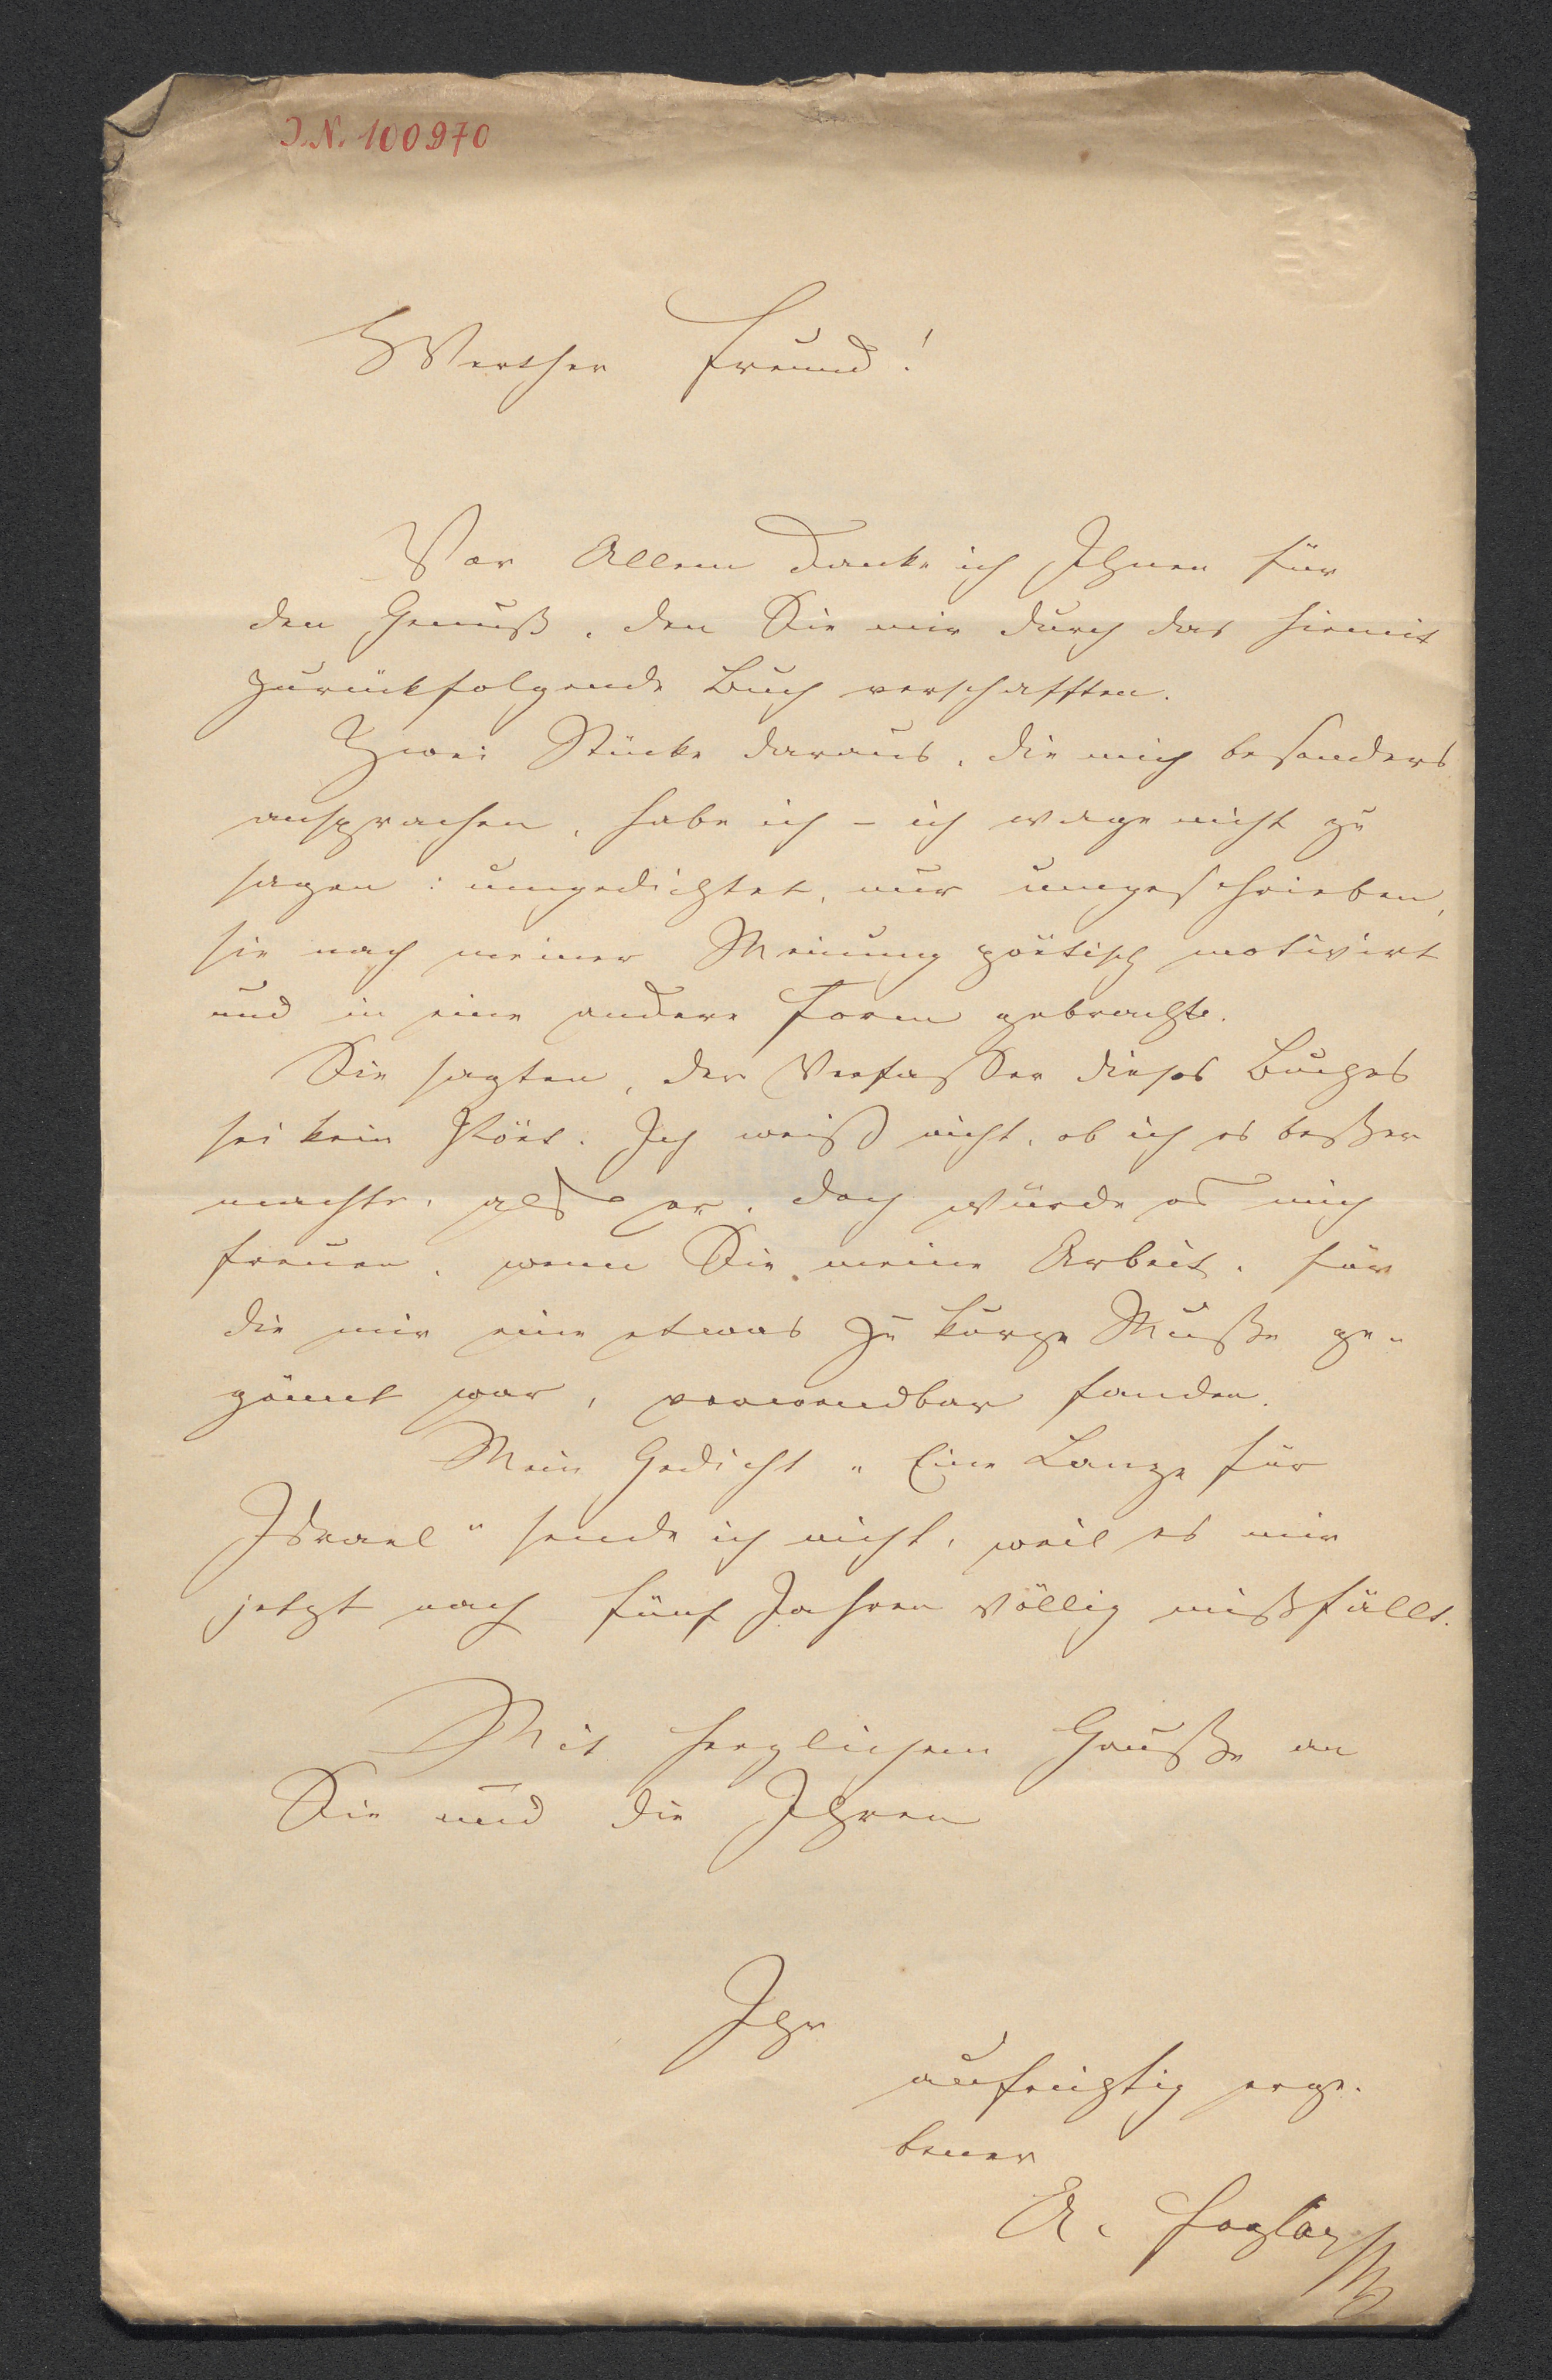 J.N. 100970
Werther Freund!
Vor Allem danke ich Ihnen für
den Genuß, den Sie mir durch das hiemit
zurückfolgende Buch verschafften.
Zwei Stücke daraus, die mich besonders
ansprachen, habe ich – ich wage nicht zu
sagen: umgedichtet, nur umgeschrieben,
sie nach meiner Meinung poëtisch motivirt
und in eine andere Form gebracht.
Sie sagten, der Verfasser dieses Buches
sei kein Poët. Ich weiß nicht, ob ich es besser
machte, als er, doch würde es mich
freuen, wenn Sie meine Arbeit, für
die mir eine etwas zu kurze Muße ge-
gönnt war, verwendbar fanden.
Mein Gedicht „Eine Lanze für
Israel" sende ich nicht, weil es mir
jetzt nach fünf Jahren völlig mißfällt.
Mit herzlichem Gruße an
Sie und die Ihren
Ihr
aufrichtig erge-
bener
A. Foglar